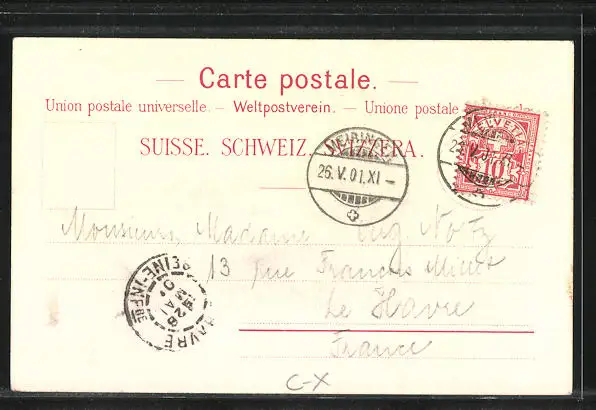 Carte postale.
Union postale universelle. — Weltpostverein. — Unione postale
SUISSE. SCHWEIZ. SVIZZERA.
HELVETIA
10
MEIRINGEN
26.V.01.XI–
26.V.01.XI
Monsieur, Madame Eug. Notz
13 rue François
Le Havre
France
HAVRE
SEINE-INFRE
C-X